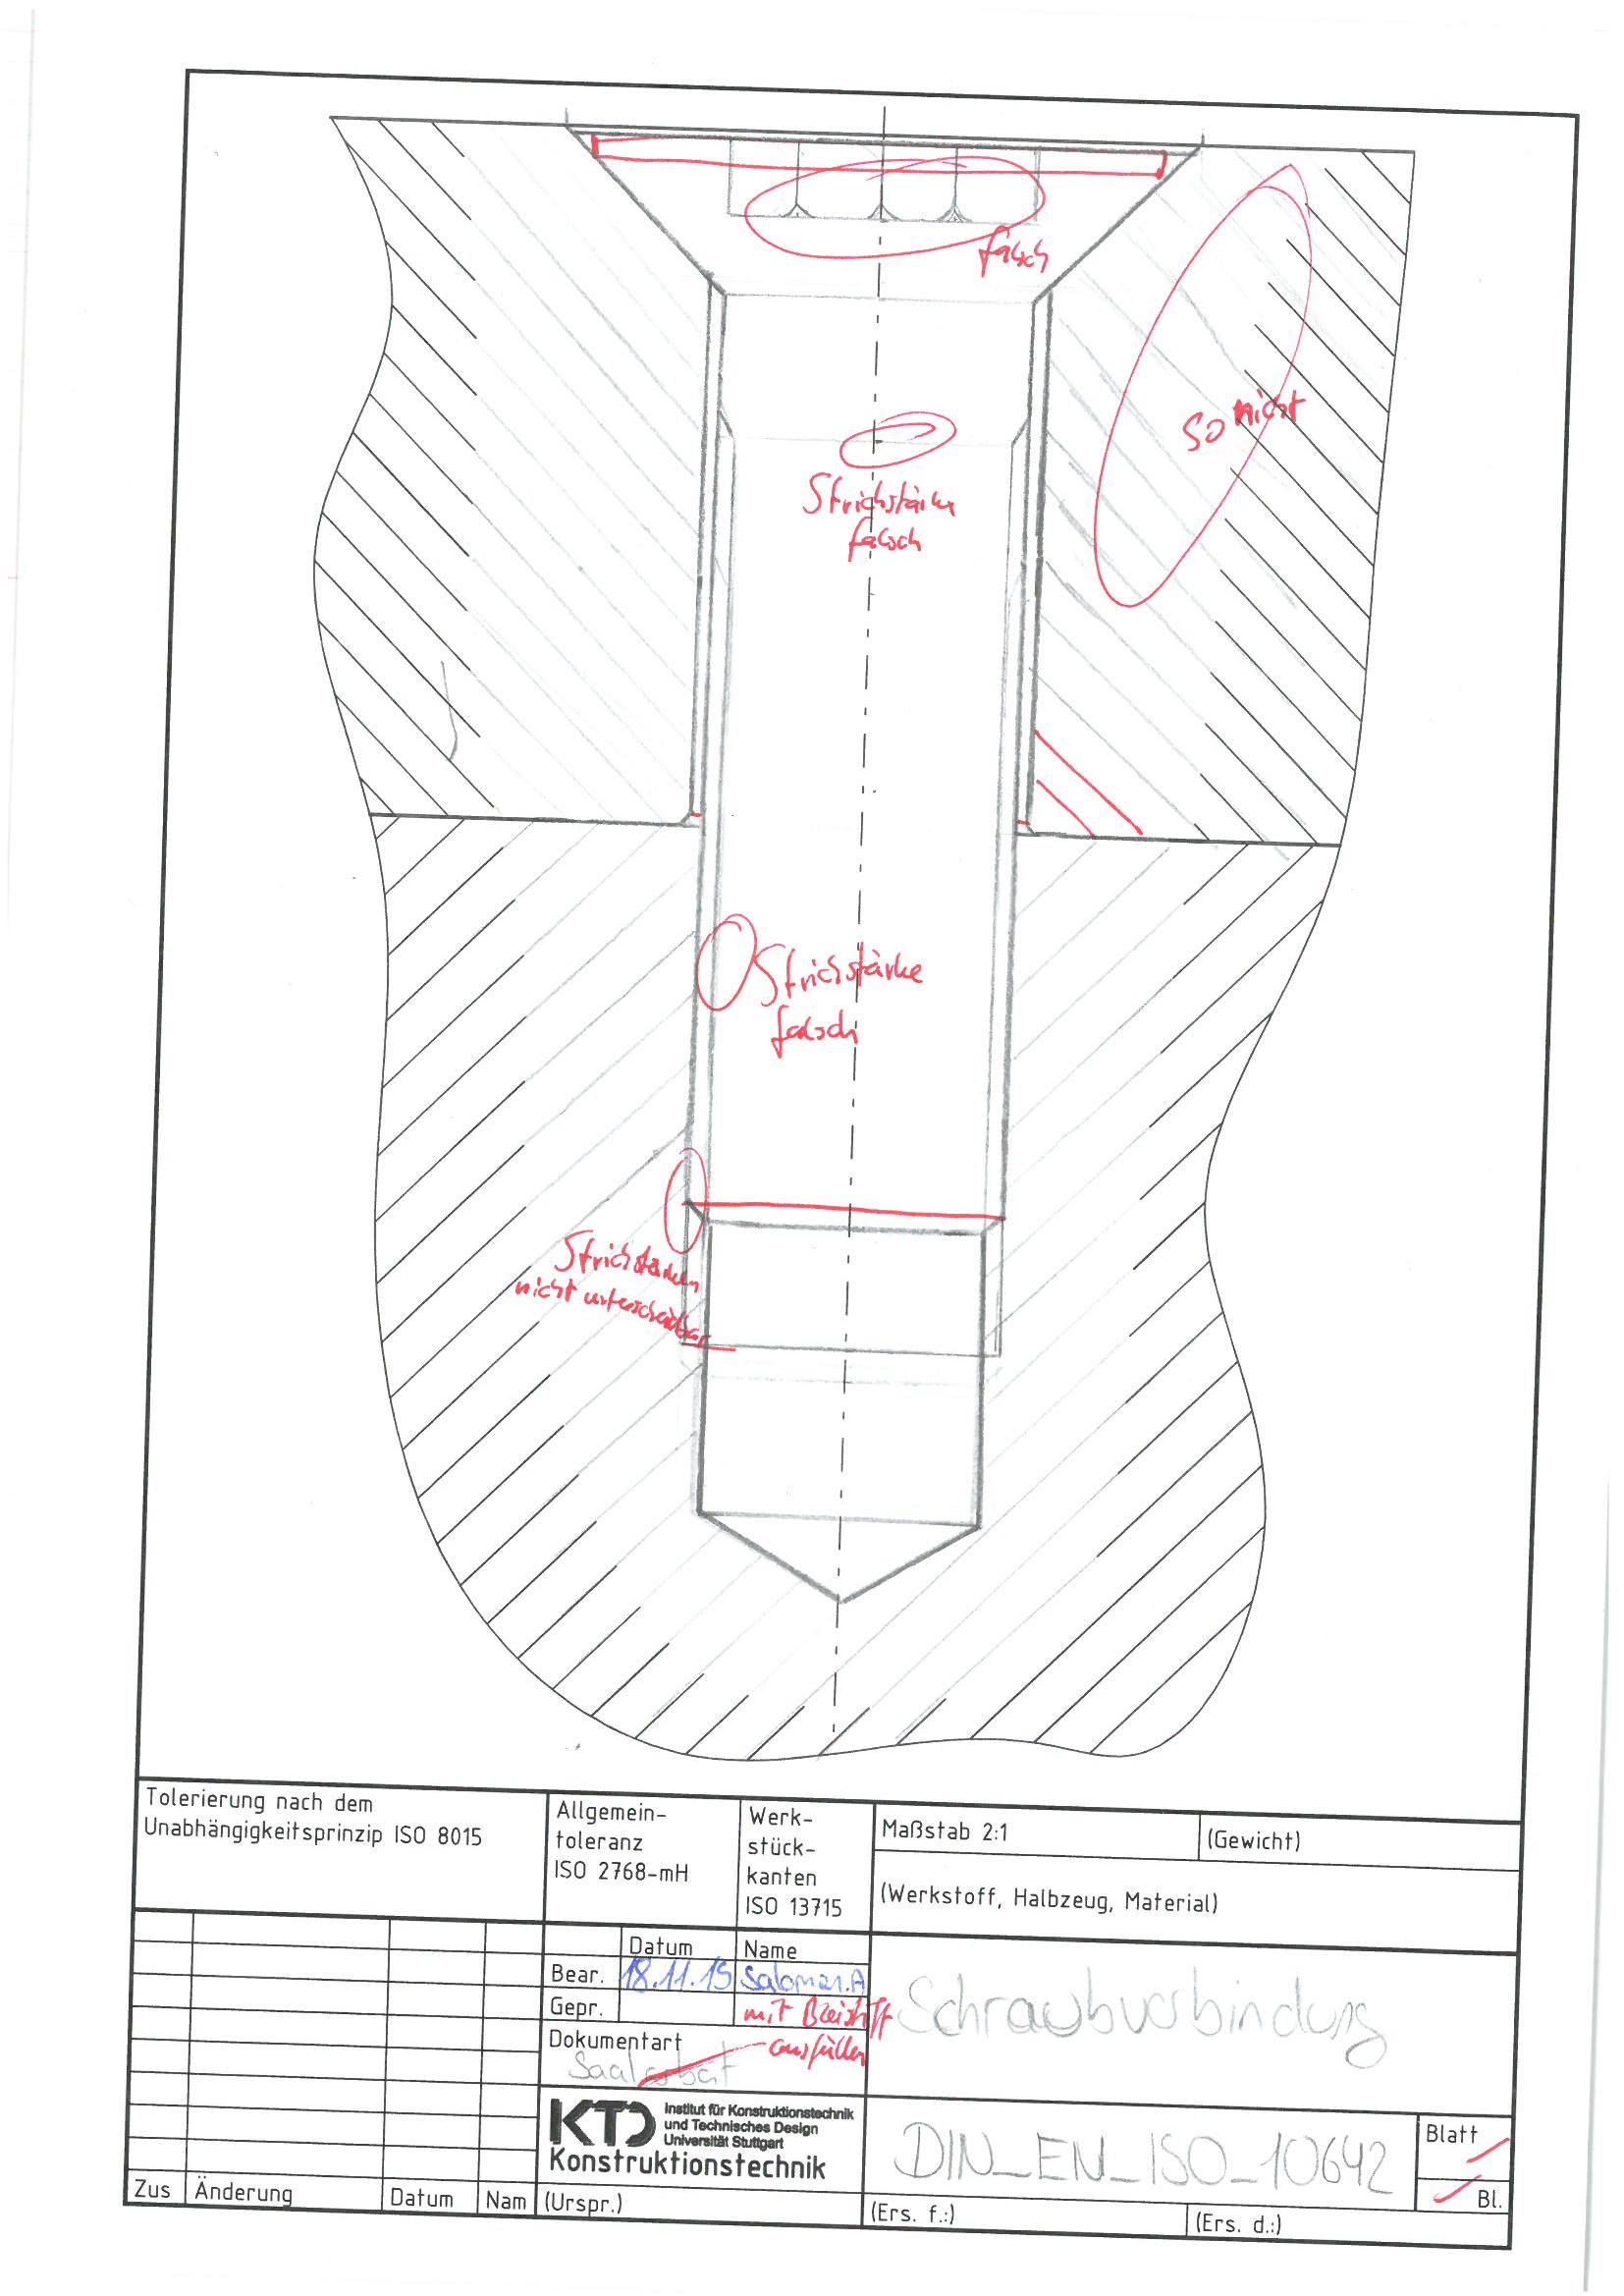 falsch
so nicht
Strichstärke
falsch
Strichstärke
falsch
Strichstärken
nicht unterscheidbar
Tolerierung nach dem
Unabhängigkeitsprinzip ISO 8015
Allgemein-
toleranz
ISO 2768-mH
Werk-
stück-
kanten
ISO 13715
Maßstab 2:1
(Gewicht)
(Werkstoff, Halbzeug, Material)
Datum
Name
Bear.
18.11.15
Gepr.
mit Bleistift
ausfüllen
Dokumentart
Saalarbeit
Schraubverbindung
KTD
Institut für Konstruktionstechnik
und Technisches Design
Universität Stuttgart
Konstruktionstechnik
DIN_EN_ISO_10642
Blatt
Bl.
Zus
Änderung
Datum
Nam
(Urspr.)
(Ers. f.:)
(Ers. d.:)